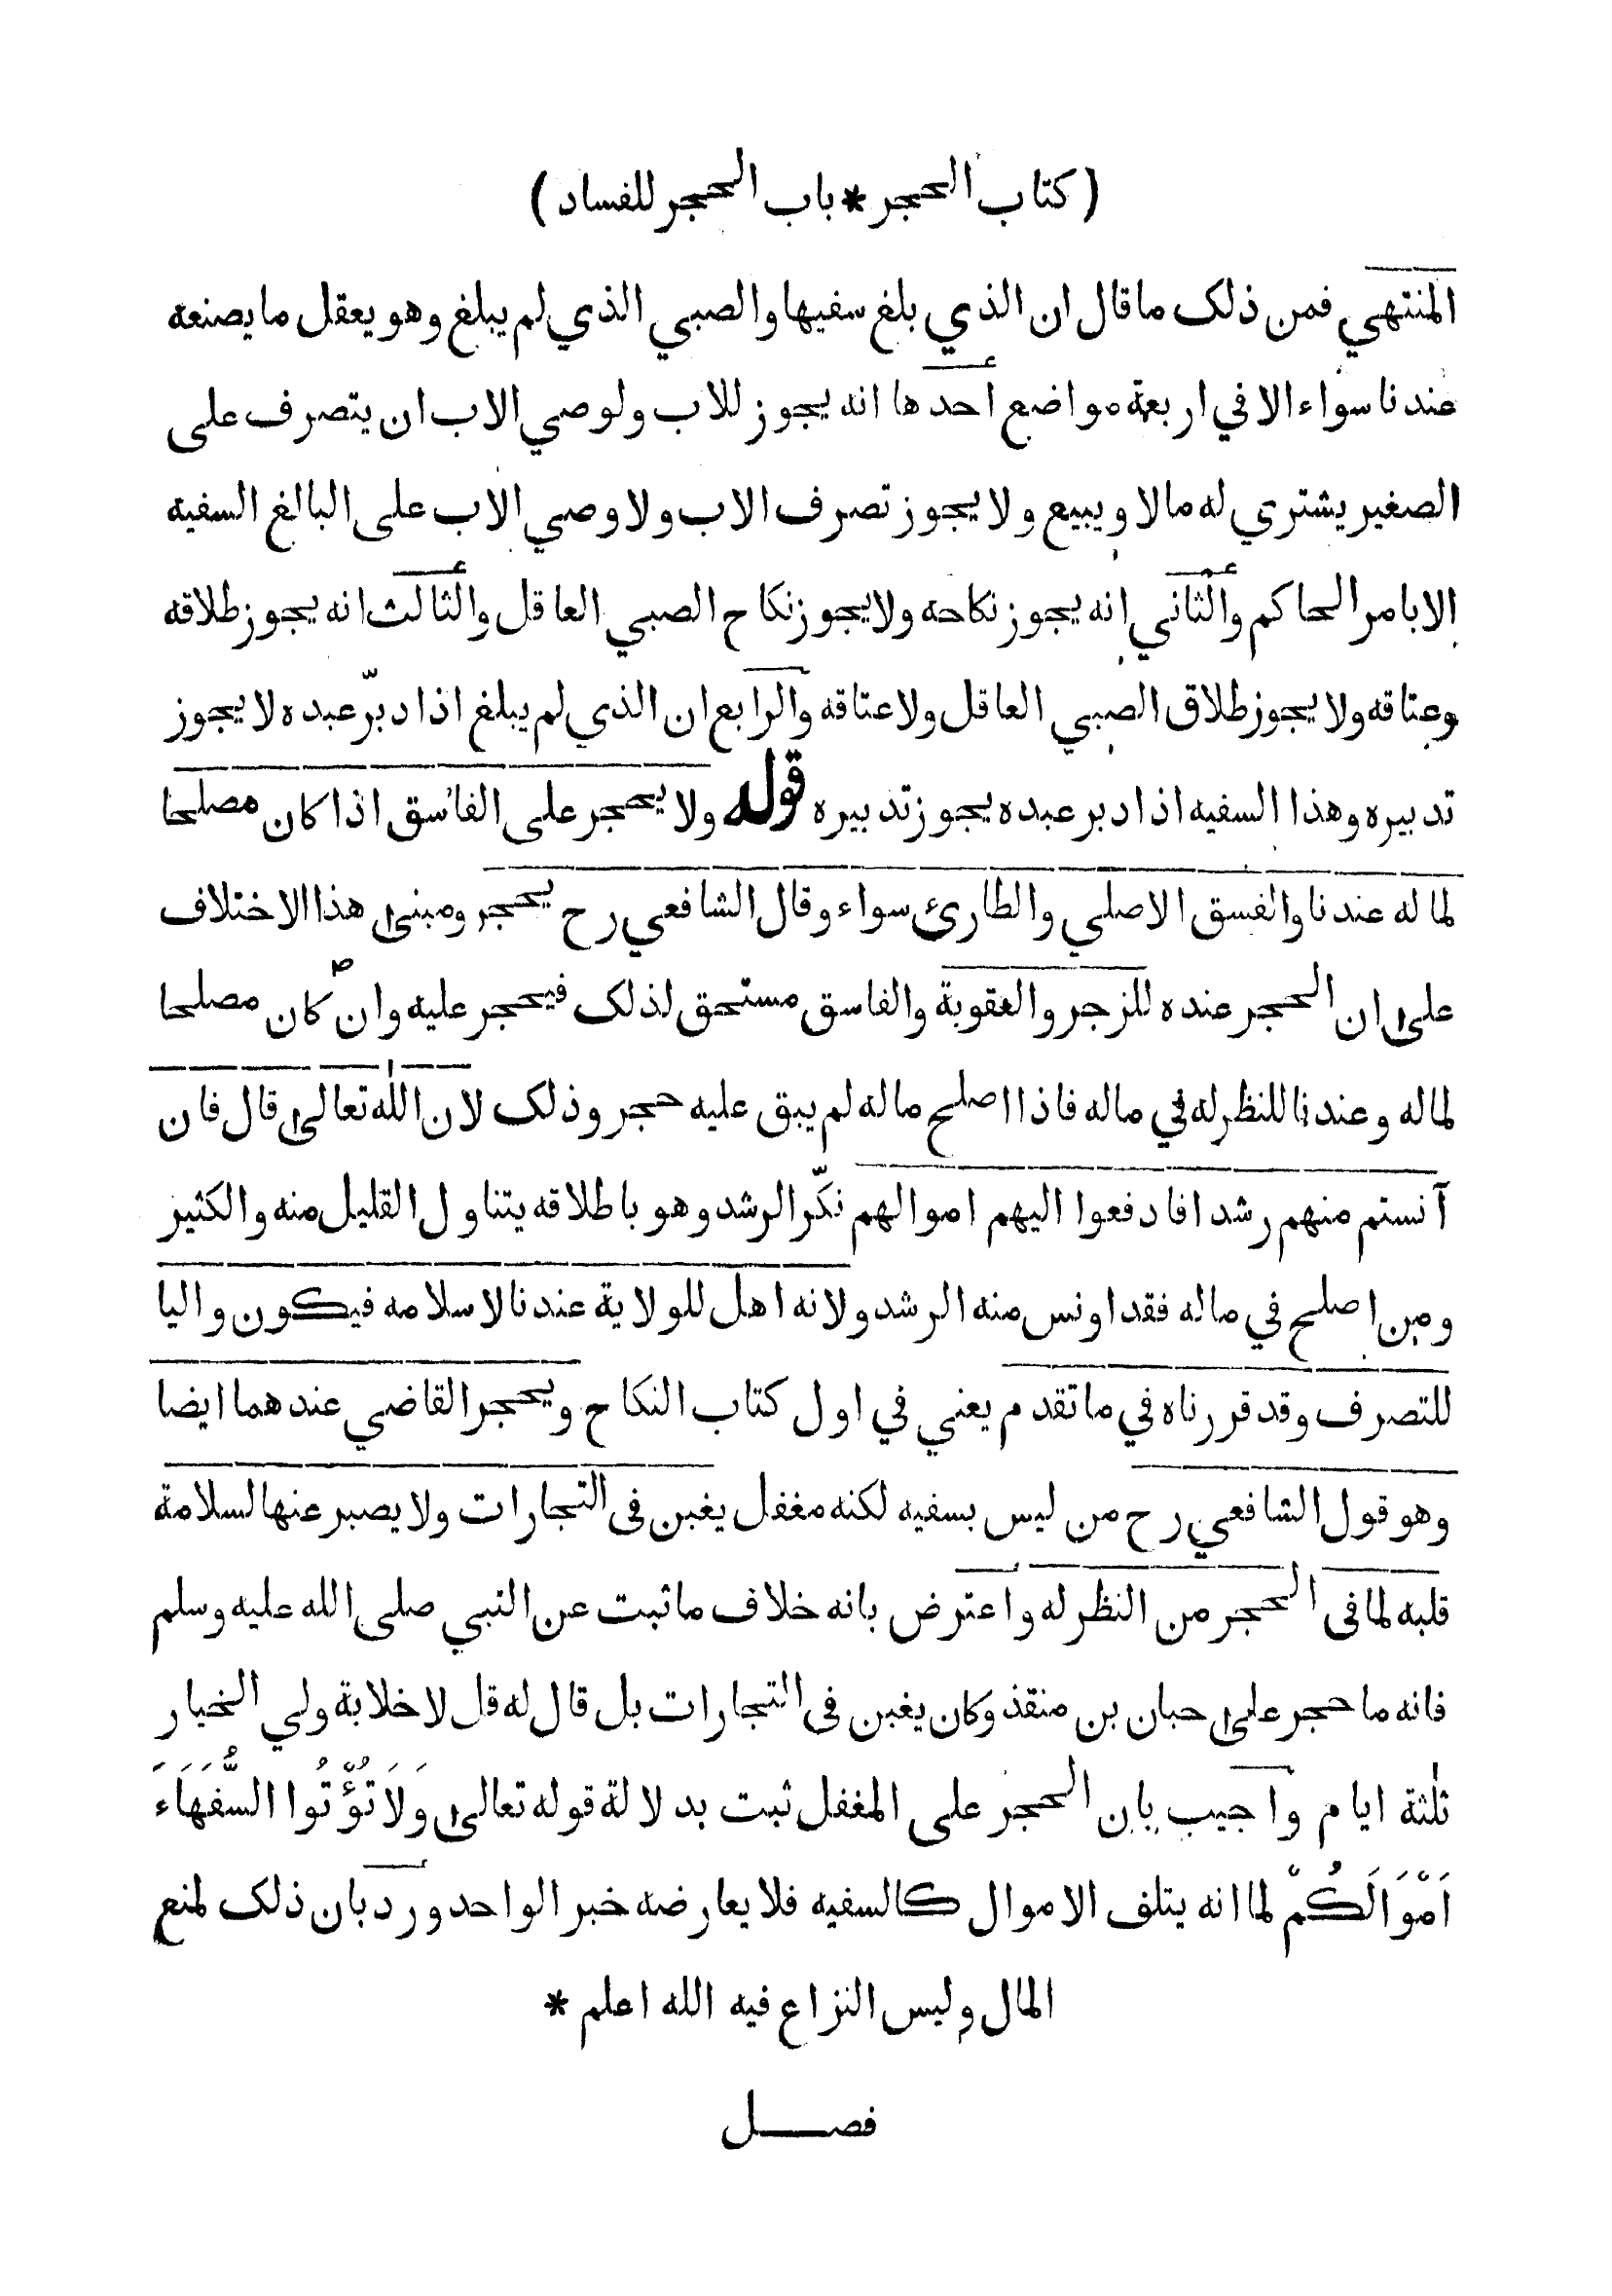 ( كتاب الحجر * باب الحجر للفساد )
المنتهي فمن ذلك ما قال ان الذي بلغ سفيها والصبي الذي لم يبلغ وهو يعقل ما يصنعه
عندنا سواء الا في اربعة مواضع احدها انه يجوز للاب ولوصي الاب ان يتصرف على
الصغير يشتري له مالا ويبيع ولا يجوز تصرف الاب ولا وصي الاب على البالغ السفيه
الا بامر الحاكم والثاني انه يجوز نكاحه ولا يجوز نكاح الصبي العاقل والثالث انه يجوز طلاقه
وعتاقه ولا يجوز طلاق الصبي العاقل ولا عتاقه والرابع ان الذي لم يبلغ اذا دبّر عبده لا يجوز
تدبيره وهذا السفيه اذا دبر عبده يجوز تدبيره قوله ولا يحجر على الفاسق اذا كان مصلحا
لماله عندنا والفسق الاصلي والطارئ سواء وقال الشافعي رح يحجر ومبنى هذا الاختلاف
على ان الحجر عنده للزجر والعقوبة والفاسق مستحق لذلك فيحجر عليه وان كان مصلحا
لماله وعندنا للنظر له في ماله فاذا اصلح ماله لم يبق عليه حجر وذلك لان الله تعالى قال فان
آنستم منهم رشدا فادفعوا اليهم اموالهم نكّر الرشد وهو باطلاقه يتناول القليل منه والكثير
ومن اصلح في ماله فقد اونس منه الرشد ولانه اهل للولاية عندنا لاسلامه فيكون واليا
للتصرف وقد قررناه في ما تقدم يعني في اول كتاب النكاح ويحجر القاضي عندهما ايضا
وهو قول الشافعي رح من ليس بسفيه لكنه مغفل يغبن في التجارات ولا يصبر عنها لسلامة
قلبه لما في الحجر من النظر له واعترض بانه خلاف ما ثبت عن النبي صلى الله عليه وسلم
فانه ما حجر على حبان بن منقذ وكان يغبن في التجارات بل قال له قل لا خلابة ولي الخيار
ثلثة ايام واجيب بان الحجر على المغفل ثبت بدلالة قوله تعالى وَلَا تُؤْتُوا السُّفَهَاءَ
اَمْوَالَكُمْ لما انه يتلف الاموال كالسفيه فلا يعارضه خبر الواحد ورد بان ذلك لمنع
المال وليس النزاع فيه الله اعلم *
فصل